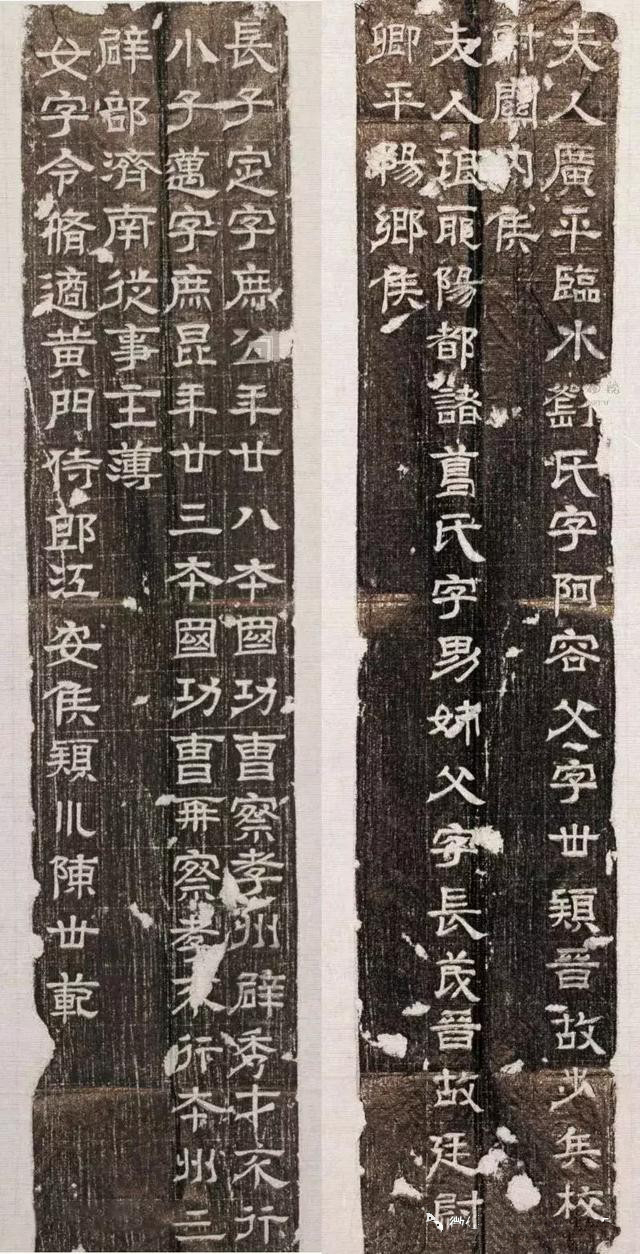 夫人廣平臨水劉氏字阿容父字世穎晉故步兵校
尉關内侯
夫人琅耶陽都諸葛氏字男姊父字長茂晉故廷尉
卿平陽鄉侯
長子定字庶公年廿八本國功曹察孝州辟秀才不行
小子邁字庶昆年廿三本國功曹再察孝不行本州三
辟部濟南從事主薄
女字令脩適黃門侍郎江安侯潁川陳世範